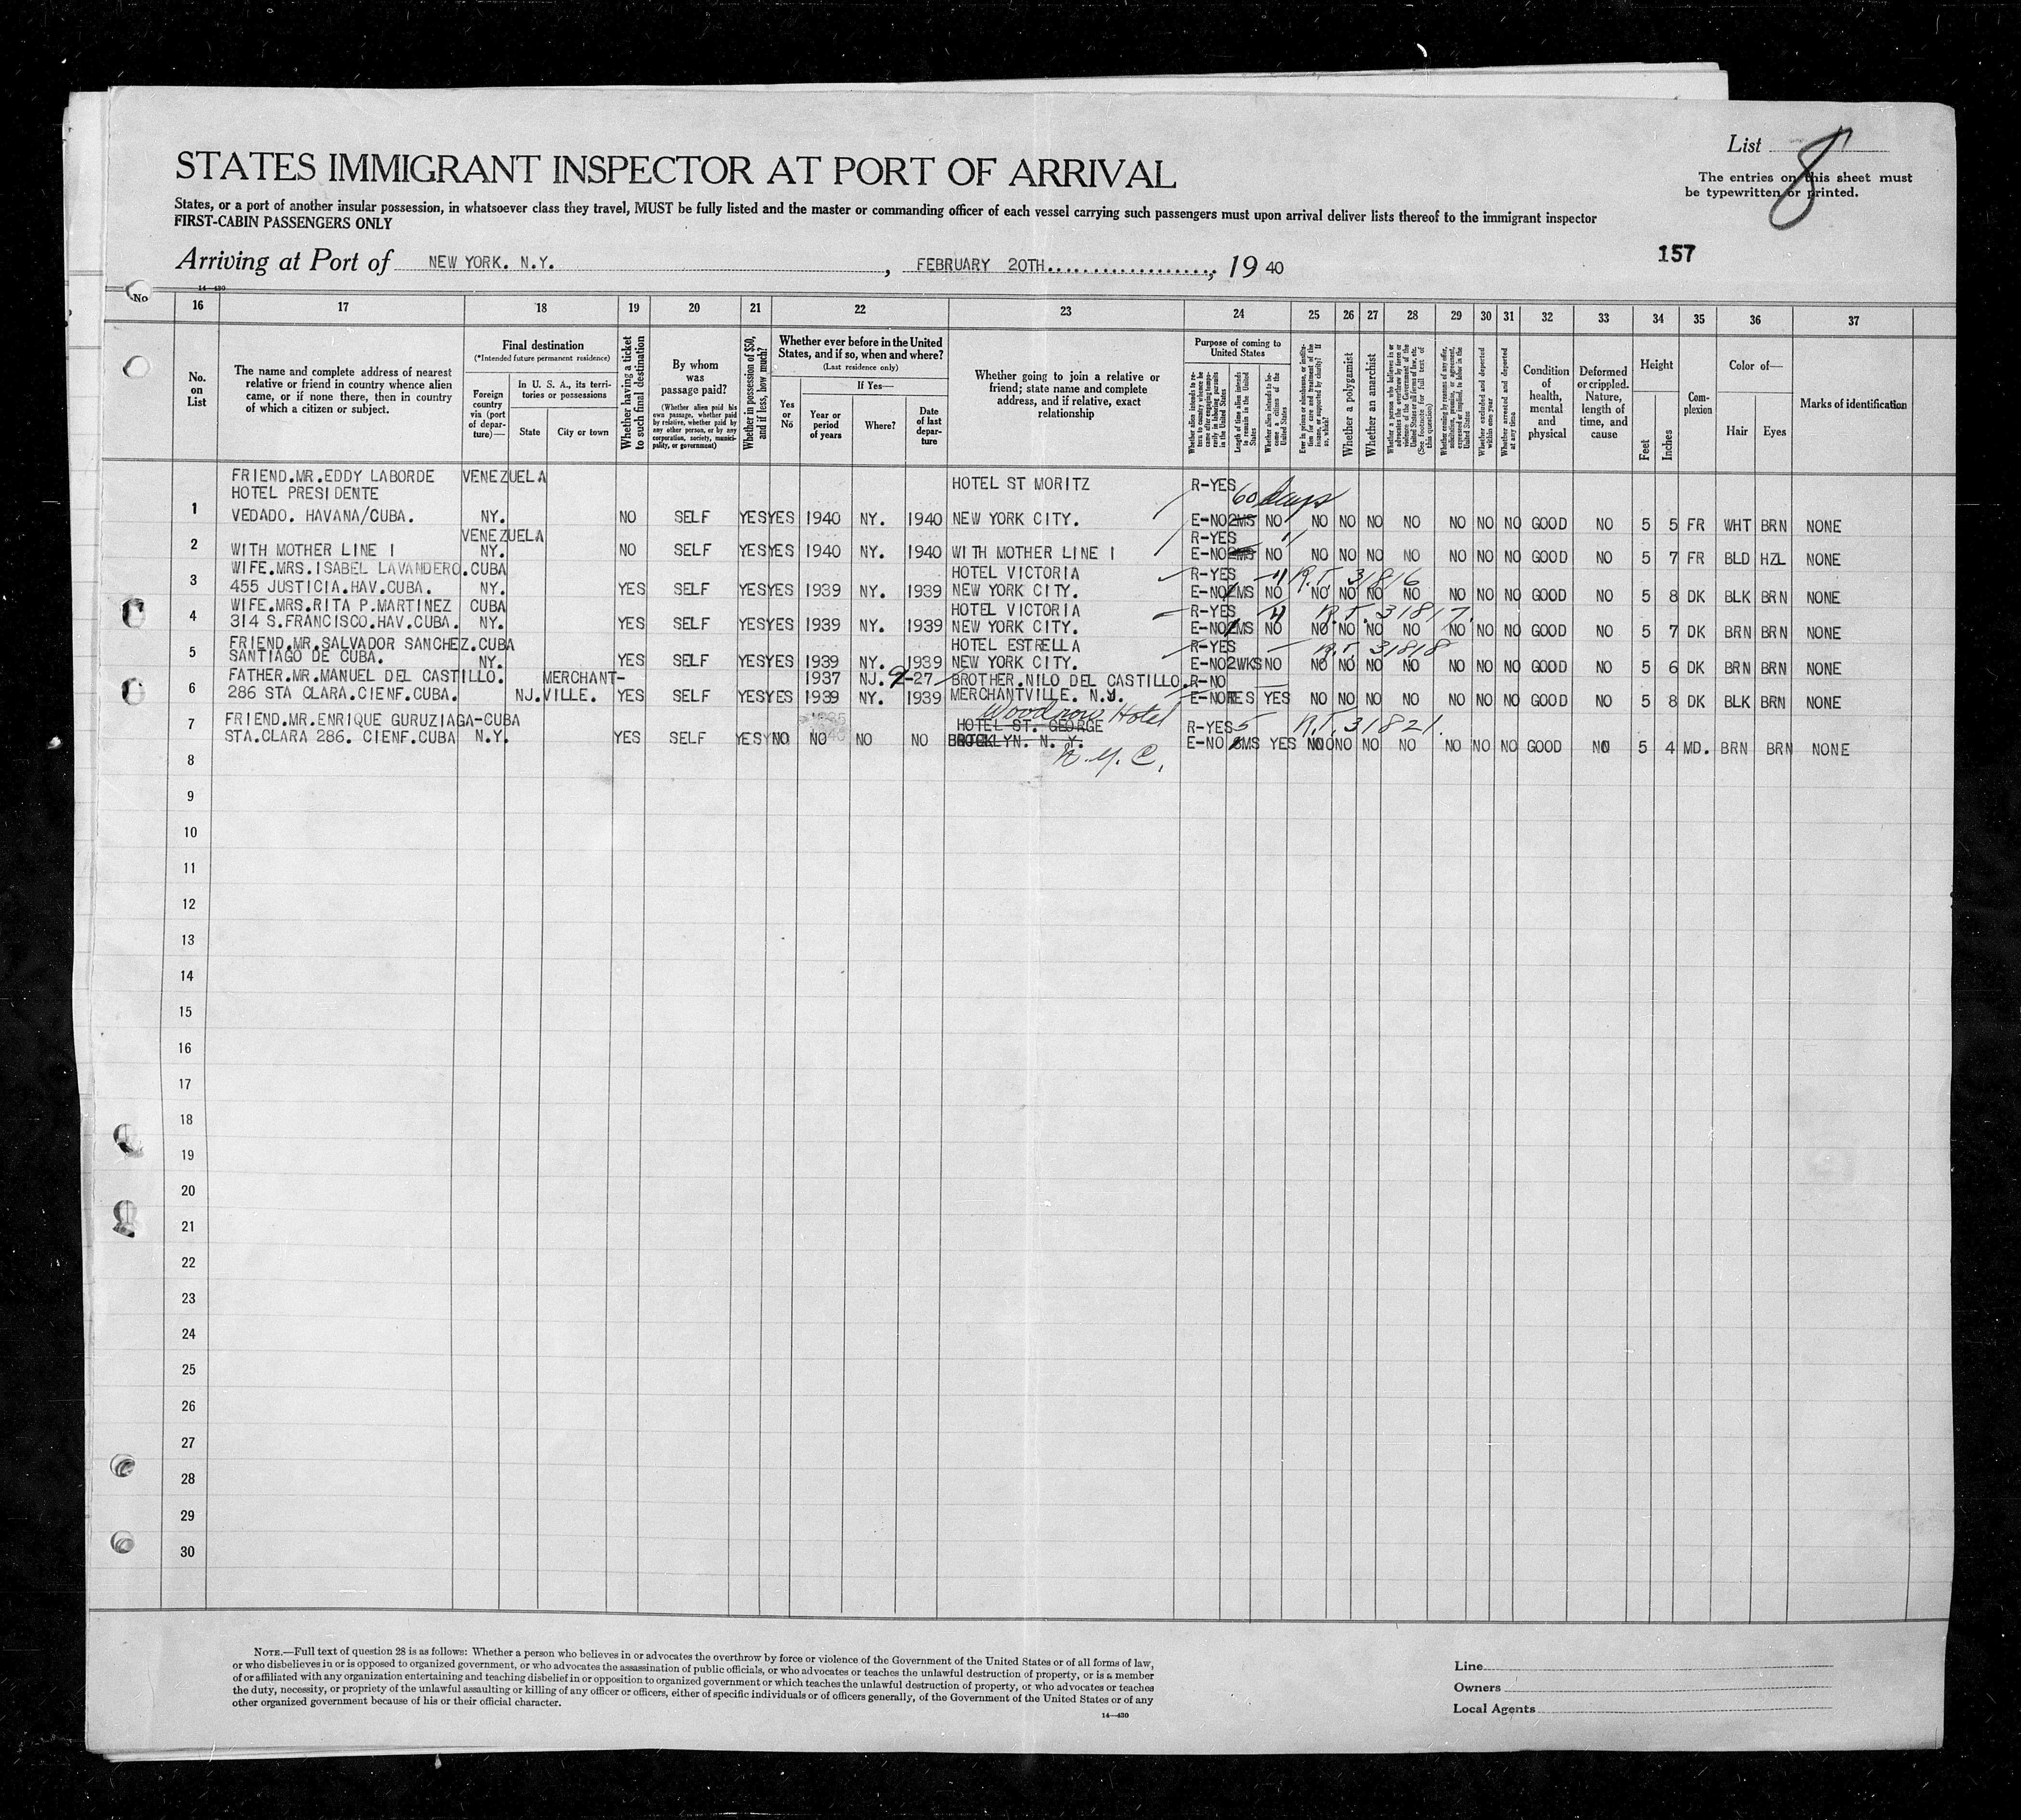 List 8
STATES IMMIGRANT INSPECTOR AT PORT OF ARRIVAL
The entries on this sheet must
be typewritten or printed.
States, or a port of another insular possession, in whatsoever class they travel, MUST be fully listed and the master or commanding officer of each vessel carrying such passengers must upon arrival deliver lists thereof to the immigrant inspector
FIRST-CABIN PASSENGERS ONLY
157
Arriving at Port of NEW YORK. N.Y. , FEBRUARY 20TH , 19 40
14—430
No
16 17 18 19 20 21 22 23 24 25 26 27 28 29 30 31 32 33 34 35 36 37
No. on List
The name and complete address of nearest relative or friend in country whence alien came, or if none there, then in country of which a citizen or subject.
Final destination
(*Intended future permanent residence)
Foreign country via (port of departure)—
In U. S. A., its territories or possessions
State
City or town
Whether having a ticket to such final destination
By whom was passage paid?
(Whether alien paid his own passage, whether paid by relative, whether paid by any other person, or by any corporation, society, municipality, or government)
Whether in possession of $50, and if less, how much?
Whether ever before in the United States, and if so, when and where?
(Last residence only)
If Yes—
Yes or No
Year or period of years
Where?
Date of last departure
Whether going to join a relative or friend; state name and complete address, and if relative, exact relationship
Purpose of coming to United States
Length of time alien intends to remain in the United States
Whether alien intends to become a citizen of the United States
Whether a polygamist
Whether an anarchist
(See footnote for full text of this question)
Whether excluded and deported within one year
Whether arrested and deported at any time
Condition of health, mental and physical
Deformed or crippled. Nature, length of time, and cause
Height
Feet
Inches
Complexion
Color of—
Hair
Eyes
Marks of identification
FRIEND.MR.EDDY LABORDE VENEZUELA HOTEL ST MORITZ R-YES 60 days
HOTEL PRESIDENTE
1 VEDADO. HAVANA/CUBA. NY. NO SELF YES YES 1940 NY. 1940 NEW YORK CITY. E-NO 2MS NO NO NO NO NO NO NO NO GOOD NO 5 5 FR WHT BRN NONE
VENEZUELA R-YES "
2 WITH MOTHER LINE 1 NY. NO SELF YES YES 1940 NY. 1940 WITH MOTHER LINE 1 E-NO NO NO NO NO NO NO NO NO GOOD NO 5 7 FR BLD HZL NONE
WIFE.MRS.ISABEL LAVANDERO.CUBA HOTEL VICTORIA R-YES " R.T. 31816
3 455 JUSTICIA.HAV.CUBA. NY. YES SELF YES YES 1939 NY. 1939 NEW YORK CITY. E-NO MS NO NO NO NO NO NO NO NO GOOD NO 5 8 DK BLK BRN NONE
WIFE.MRS.RITA P.MARTINEZ CUBA HOTEL VICTORIA R-YES " R.T. 31817
4 314 S.FRANCISCO.HAV.CUBA. NY. YES SELF YES YES 1939 NY. 1939 NEW YORK CITY. E-NO MS NO NO NO NO NO NO NO NO GOOD NO 5 7 DK BRN BRN NONE
FRIEND.MR.SALVADOR SANCHEZ.CUBA HOTEL ESTRELLA R-YES R.T. 31818
5 SANTIAGO DE CUBA. NY. YES SELF YES YES 1939 NY. 1939 NEW YORK CITY. E-NO 2WKS NO NO NO NO NO NO NO NO GOOD NO 5 6 DK BRN BRN NONE
FATHER.MR.MANUEL DEL CASTILLO. MERCHANT- 1937 NJ. 9-27 BROTHER.NILO DEL CASTILLO. R-NO
6 286 STA CLARA.CIENF.CUBA. NJ. VILLE. YES SELF YES YES 1939 NY. 1939 MERCHANTVILLE. N.J. E-NO YES NO NO NO NO NO NO NO GOOD NO 5 8 DK BLK BRN NONE
Woodrow Hotel
7 FRIEND.MR.ENRIQUE GURUZIAGA-CUBA HOTEL ST. GEORGE R-YES 5 R.T. 31821.
STA.CLARA 286. CIENF.CUBA N.Y. YES SELF YES NO NO NO NO BROOKLYN. N. Y. E-NO MS YES NO NO NO NO NO NO NO GOOD NO 5 4 MD. BRN BRN NONE
N.Y.C.
8
9
10
11
12
13
14
15
16
17
18
19
20
21
22
23
24
25
26
27
28
29
30
NOTE.—Full text of question 28 is as follows: Whether a person who believes in or advocates the overthrow by force or violence of the Government of the United States or of all forms of law,
or who disbelieves in or is opposed to organized government, or who advocates the assassination of public officials, or who advocates or teaches the unlawful destruction of property, or is a member
of or affiliated with any organization entertaining and teaching disbelief in or opposition to organized government or which teaches the unlawful destruction of property, or who advocates or teaches
the duty, necessity, or propriety of the unlawful assaulting or killing of any officer or officers, either of specific individuals or of officers generally, of the Government of the United States or of any
other organized government because of his or their official character.
14—430
Line
Owners
Local Agents